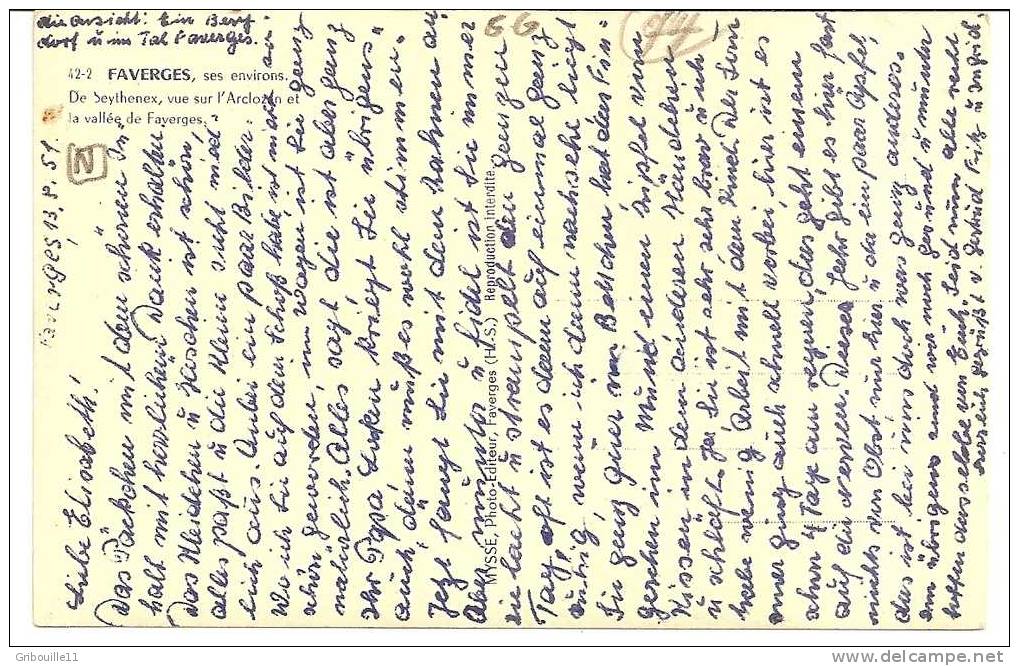 die Ansicht: Ein Berg-
dorf u im Tal Faverges.
42-2 FAVERGES, ses environs.
De Seythenex, vue sur l'Arclozan et
la vallée de Faverges.
N
GG
Faverges 13.8.51
MYSSE, Photo-Editeur, Faverges (H.S.) Reproduction Interdite
Liebe Elisabeth!
Das Päckchen mit dem schönen In-
halt mit herrlichem Dank erhalten
Das Kleidchen u Häschen ist schön,
alles paßt u die Kleine sieht nied-
lich aus. Anbei ein paar Bilder.
Wo ich sie auf dem Schoß habe ist
schön geworden, im Wagen ist sie ganz
natürlich. Alles sagt die ist aber ganz
ihr Papa. Locken kriegt sie übrigens
auch, dann muß es wohl stimmen.
Jetzt fängt sie mit dem
Aber munter u fidel ist sie immer
sie lacht u strampelt den ganzen
Tag, oft ist es dann auf einmal ganz
ruhig, wenn ich dann nachsehe liegt
sie ganz quer im Bettchen hat das Fin-
gerchen im Mund einen Zipfel vom
Kissen in dem anderen Händchen
u schläft. Ja sie ist sehr sehr brav u ich
habe wenig Arbeit mit dem Kind. Der Som-
mer ging auch schnell vorbei, hier ist es
schon 4 Tage am regnen, das geht einem
auf die Nerven. Dieses Jahr gibt es hier fast
nichts von Obst nur hier u da ein paar Äpfel,
das ist bei uns doch was ganz anderes.
Im übrigen sind wir noch gesund u munter
hoffen dasselbe von Euch, Seid nun alle recht
herzlich gegrüßt v. Gertrud Fritz u Ingrid